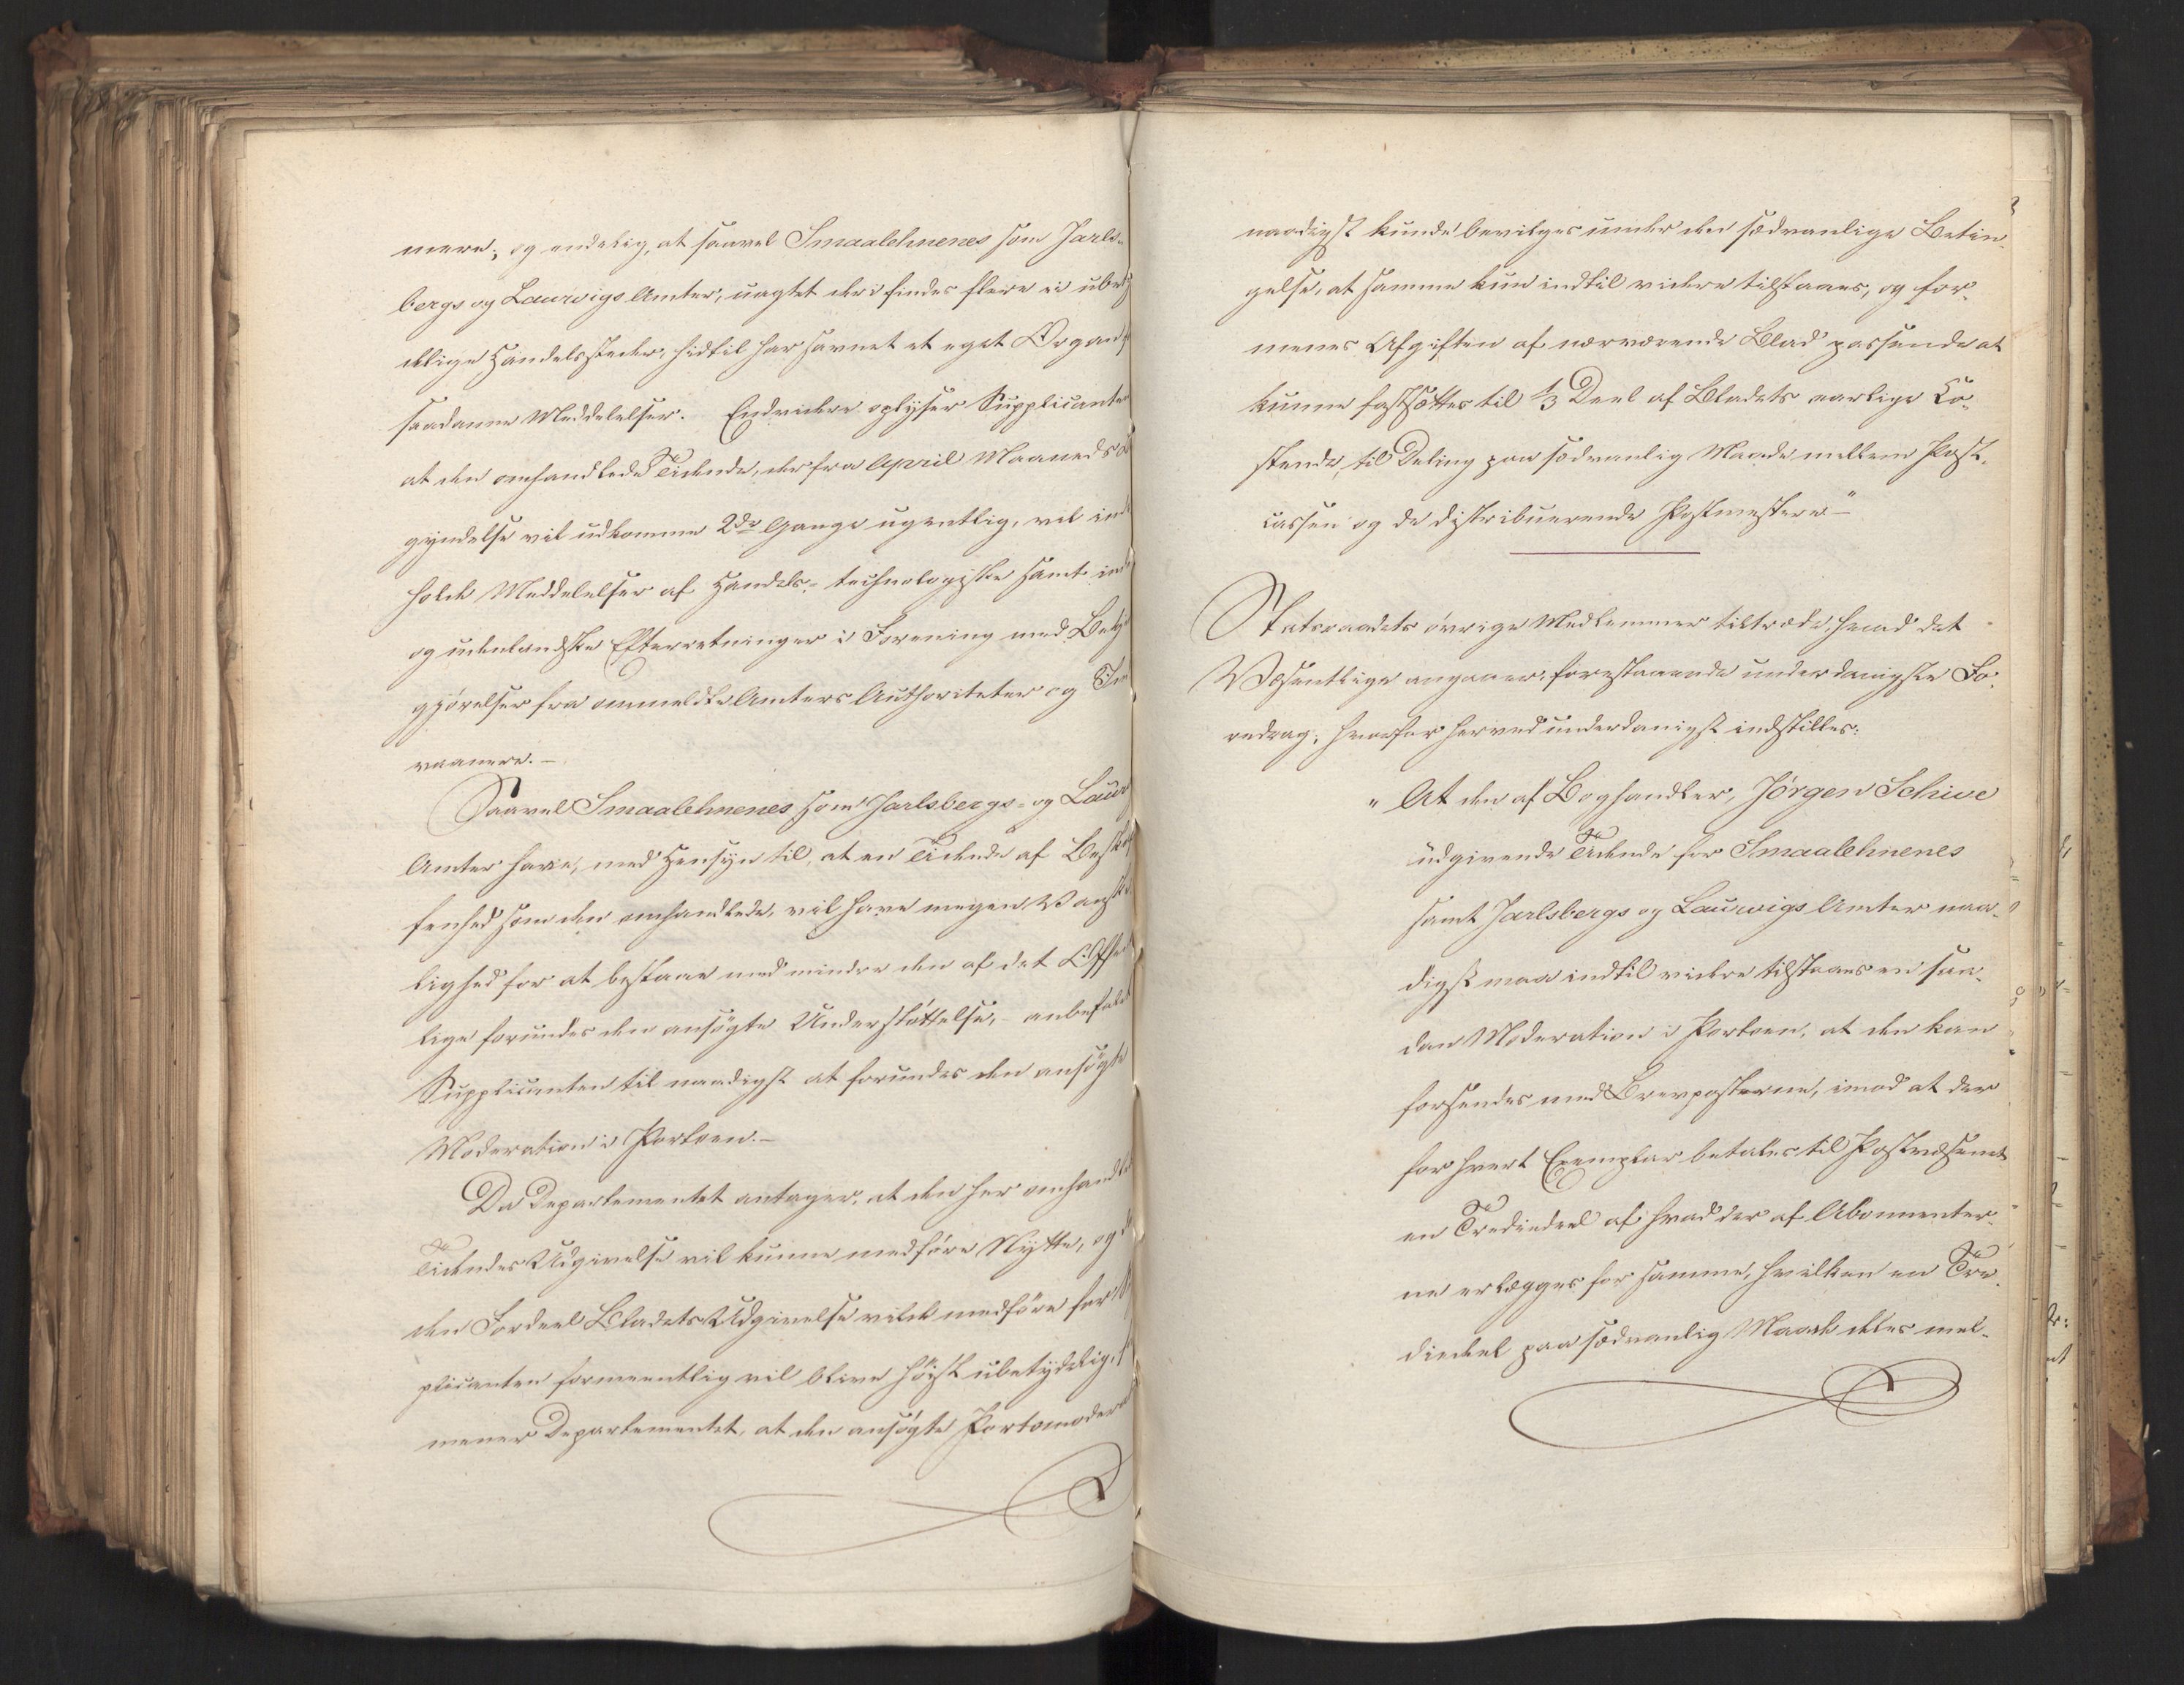 mere; og endelig, at saavel Smaalehnenes som Jarls-
bergs og Laurvigs Amter, uagtet deri findes flere ei ubety
delige Handelsstæder, hidtil har savnet et eget Organ f
saadanne Meddelelser. Endvidere oplyser Supplicanten
at den omhandlede Tidende, der fra April Maaneds Be
gyndelse vil udkomme 2de Gange ugentlig, vil inde
holde Meddelelser af Handels-, technologiske samt inde
og udenlandske Efterretninger i Forening med Bekjendt
gjørelser fra ommeldte Amters Authoriteter og Ind
vaanere.-
Saavel Smaalehnenes som Jarlsbergs- og Laur
Amter have, med Hensyn til, at en Tidende af Beskaf
fenhed som den omhandlede, vil have megen Vanske
lighed for at bestaae med mindre den af det Offent
lige forundes den ansøgte Understøttelse,- anbefalet
Supplicanten til naadigst at forundes den ansøgte
Moderation i Portoen.-
Da Departementet antager, at den her omhandlede
Tidendes Udgivelse vil kunne medføre Nytte, og da
den Fordeel Bladets Udgivelse vilde medføre for Sup
plicanten formeentlig vil blive høist ubetydelig, for
mener Departementet, at den ansøgte Portomoderat
naadigst kunde bevilges under den sædvanlige Betin-
gelse, at samme kun indtil videre tilstaaes, og for-
menes Afgiften af nærværende Blad passende at
kunne fastsættes til 1/3 Deel af Bladets aarlige Ko-
stende, til Deling paa sædvanlig Maade mellem Post-
cassen og de distribuerende Postmestere"-
Statsraadets øvrige Medlemmer tiltræde, hvad det
Væsentlige angaaer, forestaaende underdanigste Fo-
redrag, hvorfor herved underdanigst indstilles:
" At den af Boghandler, Jørgen Schive
udgivende Tidende for Smaalehnenes
samt Jarlsbergs og Laurvigs Amter naa-
digst maa indtil videre tilstaaes en saa-
dan Moderation i Portoen, at den kan
forsendes med Brevposterne, imod at der
for hvert Exemplar betales til Postvæsenet
en Trediedeel af hvad der af Abonnenter-
ne erlægges for samme, hvilken en Tre-
diedeel paa sædvanlig Maade deles mel-